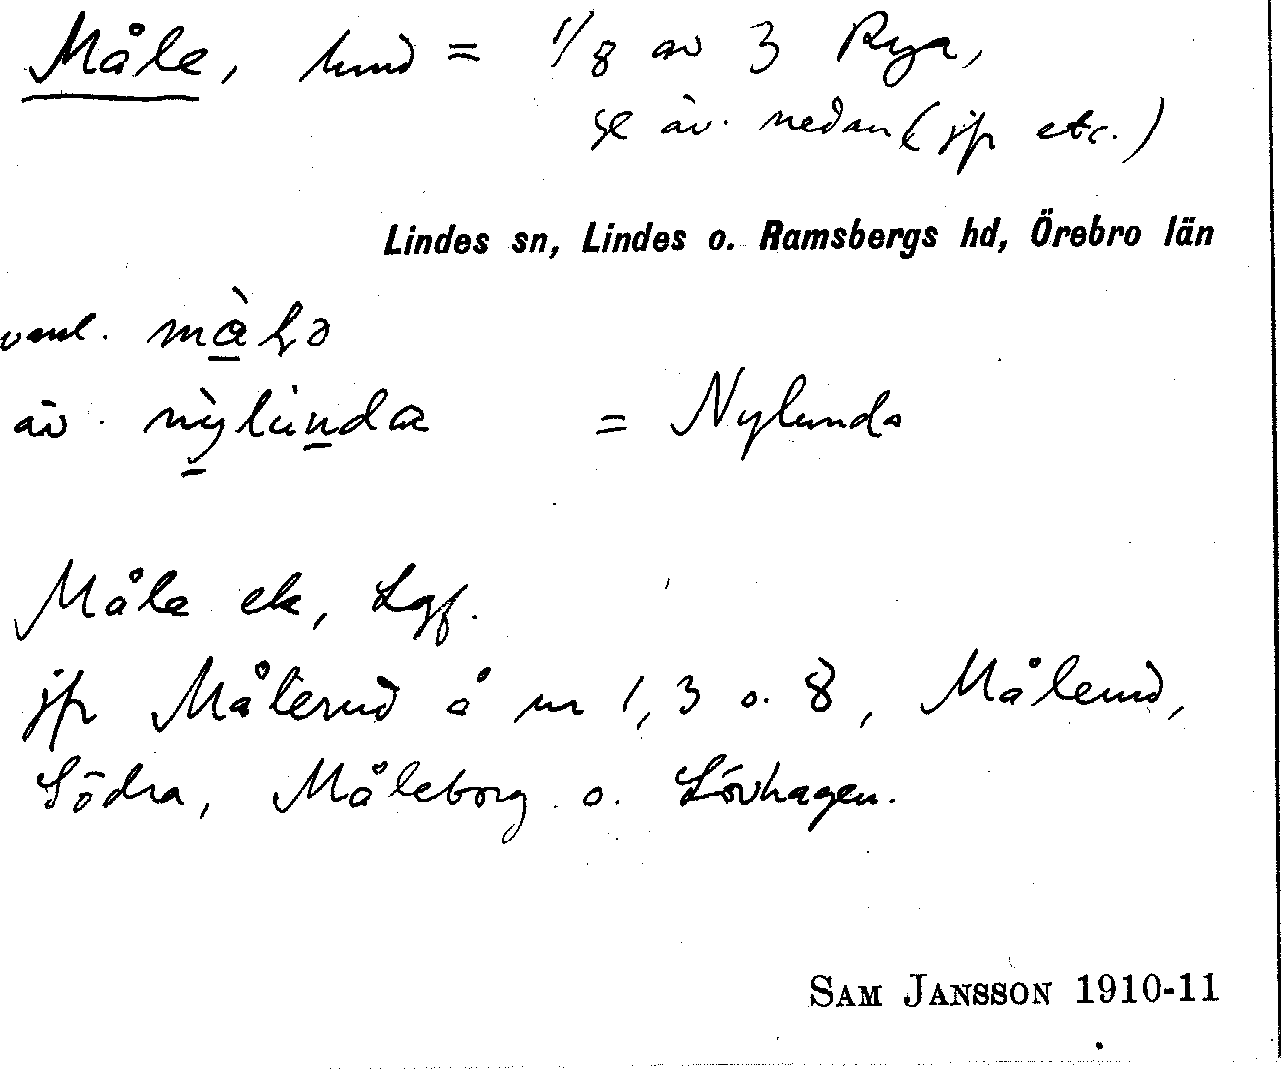 Måle, hmd = 1/8 av 3 Rya,
se äv. nedan (jfr etc.)
Lindes sn, Lindes o. Ramsbergs hd, Örebro län
vanl. màḷə
äv. nỳlùnda = Nylunda
Måle ek, Lgf.
jfr Målerud å nr 1, 3 o. 8, Målerud,
Södra, Måleborg o. Lövhagen.
SAM JANSSON 1910-11